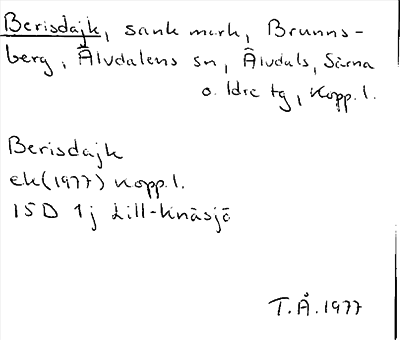 Berisdajk, sank mark, Brunns-
berg, Älvdalens sn, Älvdals, Särna
o. Idre tg, Kopp. l.
Berisdajk
ek (1977) Kopp. l.
15D 1j Lill-Knäsjö
T.Å. 1977